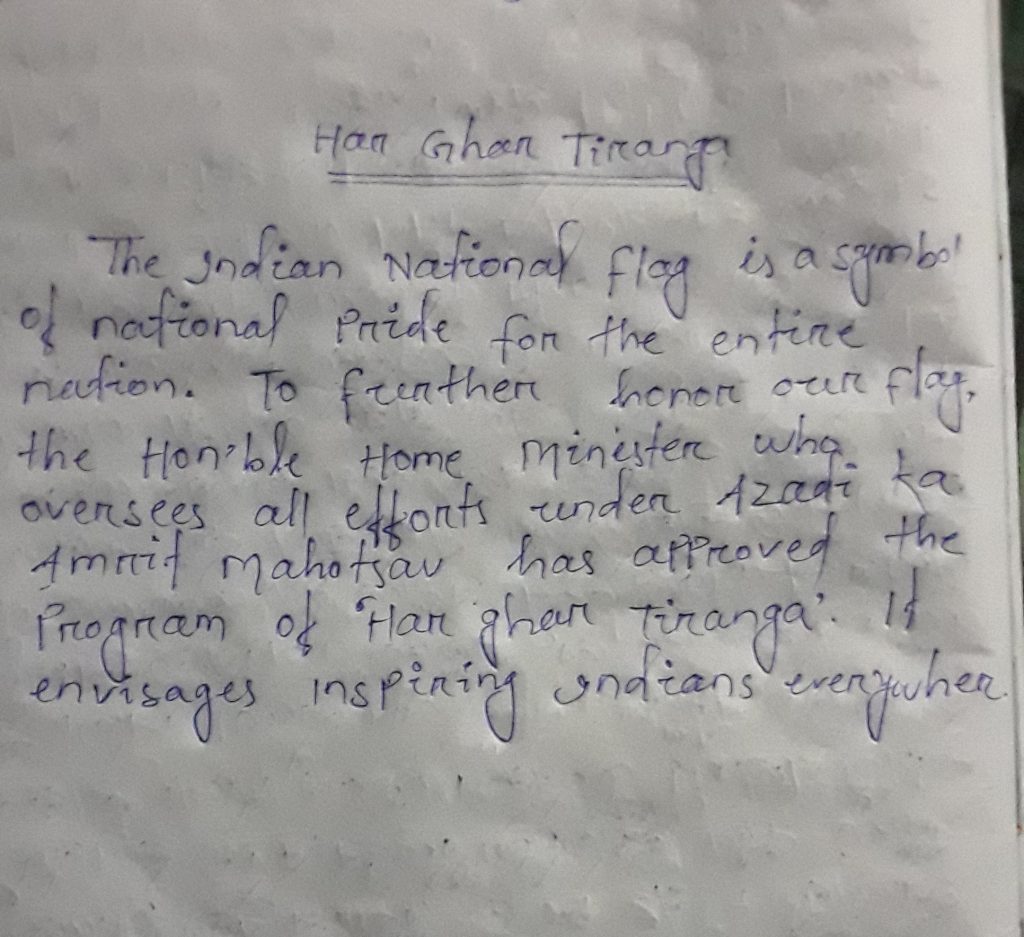 Har Ghar Tiranga
The Indian National flag is a symbol
of national Pride for the entire
nation. To further honor our flag,
the Hon'ble Home Minister who
oversees all efforts under Azadi ka
Amrit Mahotsav has approved the
Program of 'Har ghar Tiranga'. It
envisages inspiring Indians everywher.